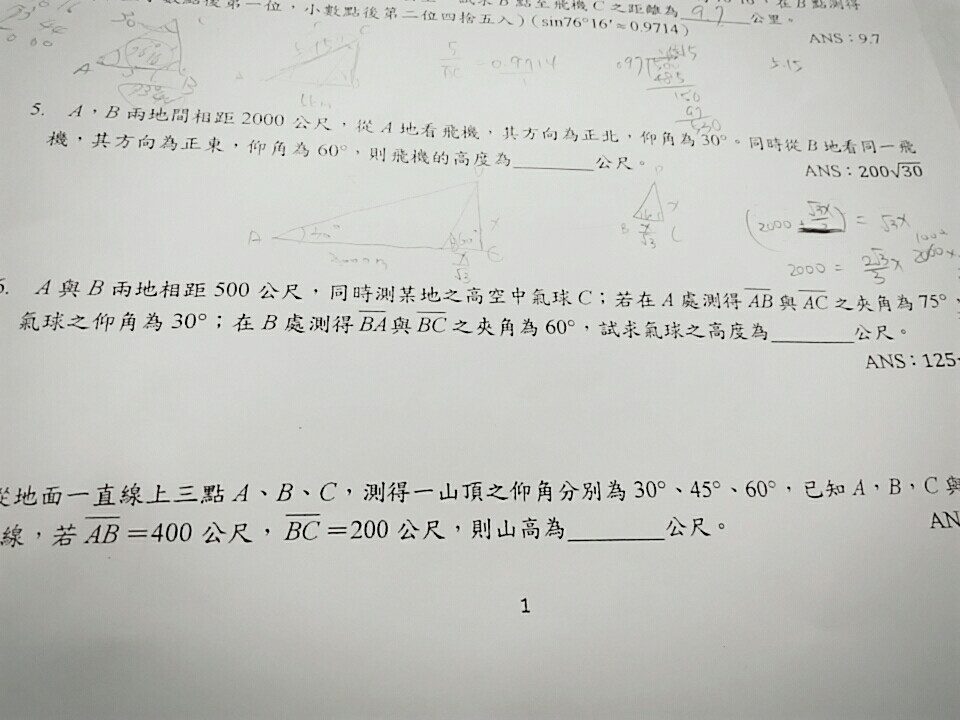 小數點後第一位，小數點後第二位四捨五入）(sin76°16′≈0.9714)
B點至飛機C之距離為 9.7 公里。
ANS：9.7
5. A，B兩地間相距2000公尺，從A地看飛機，其方向為正北，仰角為30°。同時從B地看同一飛
機，其方向為正東，仰角為60°，則飛機的高度為________公尺。
ANS：200√30
2000 = 2√3/3 x
A與B兩地相距500公尺，同時測某地之高空中氣球C；若在A處測得AB與AC之夾角為75°，
氣球之仰角為30°；在B處測得BA與BC之夾角為60°，試求氣球之高度為________公尺。
ANS：125
從地面一直線上三點A、B、C，測得一山頂之仰角分別為30°、45°、60°，已知A，B，C與
線，若AB=400公尺，BC=200公尺，則山高為________公尺。
AN
1